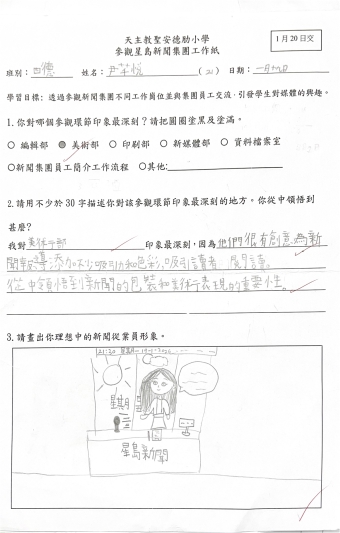 天主教聖安德肋小學
參觀星島新聞集團工作紙
1月20日交
班別：四德 姓名：尹芊悅 (21) 日期：一月十九日
學習目標：透過參觀新聞集團不同工作崗位並與集團員工交流，引發學生對媒體的興趣。
1.你對哪個參觀環節印象最深刻？請把圓圈塗黑及塗滿。
○ 編輯部 ● 美術部 ○ 印刷部 ○ 新媒體部 ○ 資料檔案室
○新聞集團員工簡介工作流程 ○其他:
2.請用不少於30字描述你對該參觀環節印象最深刻的地方。你從中領悟到
甚麼？
我對美術部 印象最深刻，因為他們很有創意，為新
聞報導添加不少吸引力和色彩，吸引讀者 閱讀。
從中領悟到新聞的包裝和藝術表現的重要性。
3.請畫出你理想中的新聞從業員形象。
21:20 星期一
星期
星島新聞